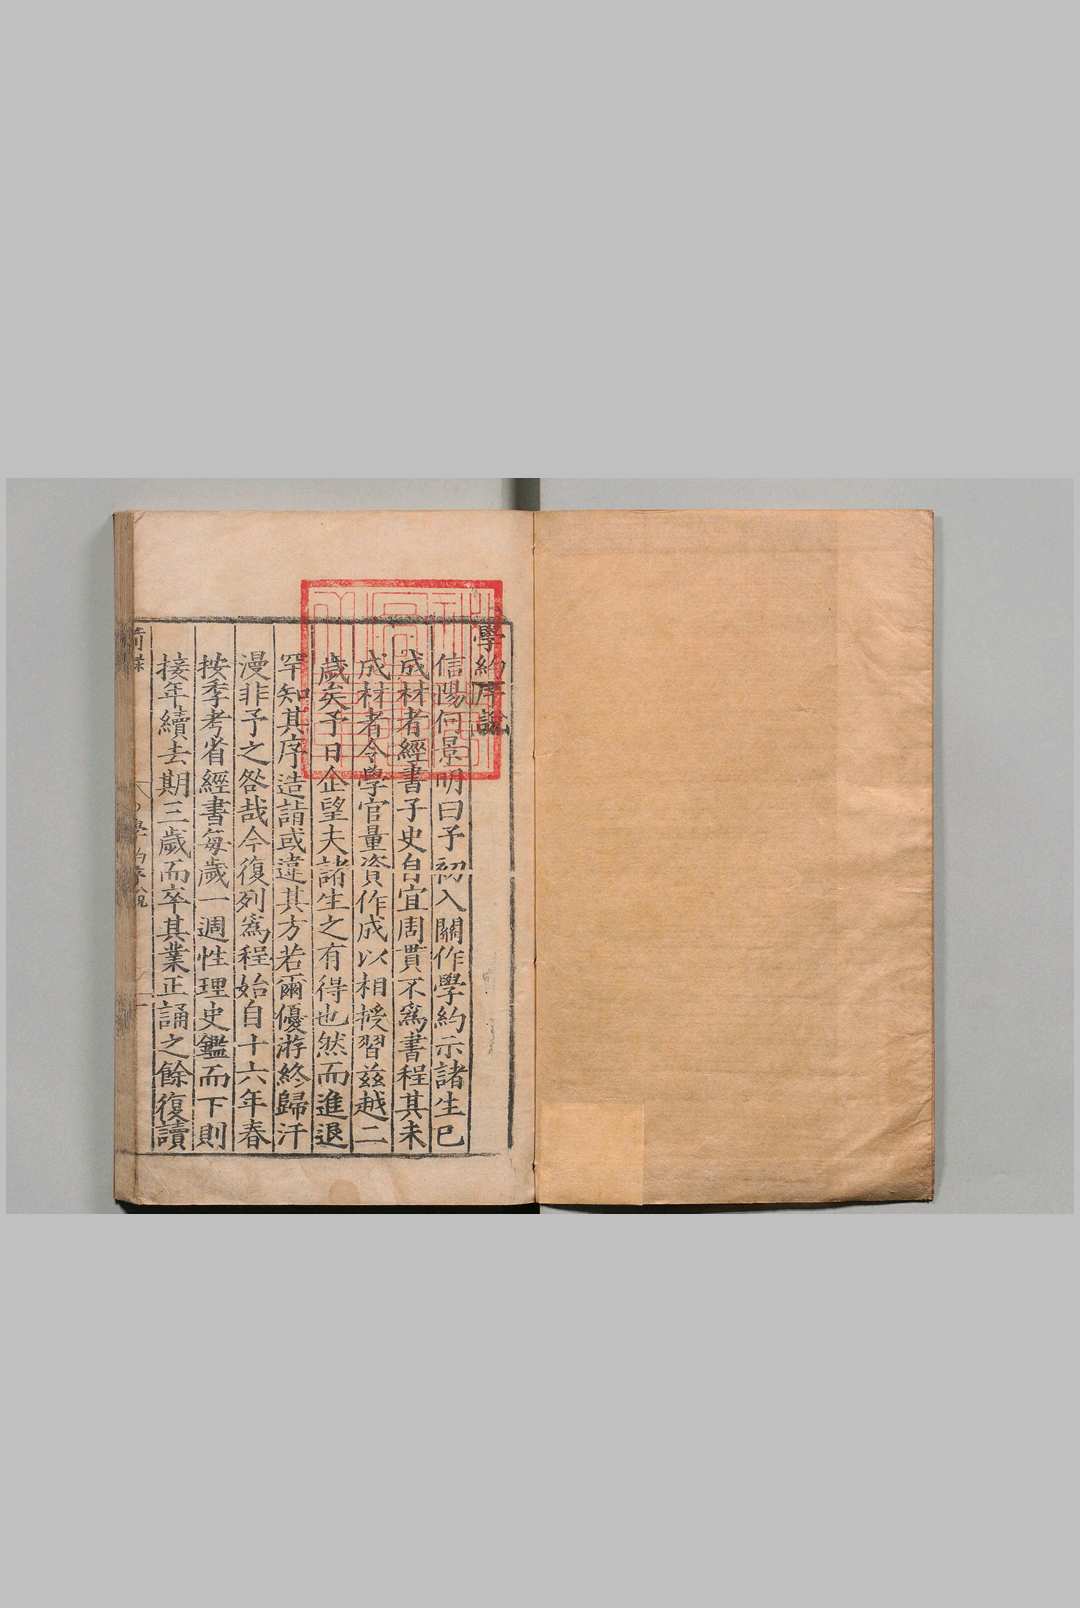 學約序説
信陽何景明曰予初入關作學約示諸生已
成材者經書子史自宜周貫不爲書程其未
成材者令學官量資作成以相授習兹越二
歲矣予日企望夫諸生之有得也然而進退
罕知其序造請或違其方若爾優游終歸汗
漫非予之咎哉今復列爲程始自十六年春
按季考省經書每歲一週性理史鑑而下則
接年續去期三歲而卒其業正誦之餘復讀